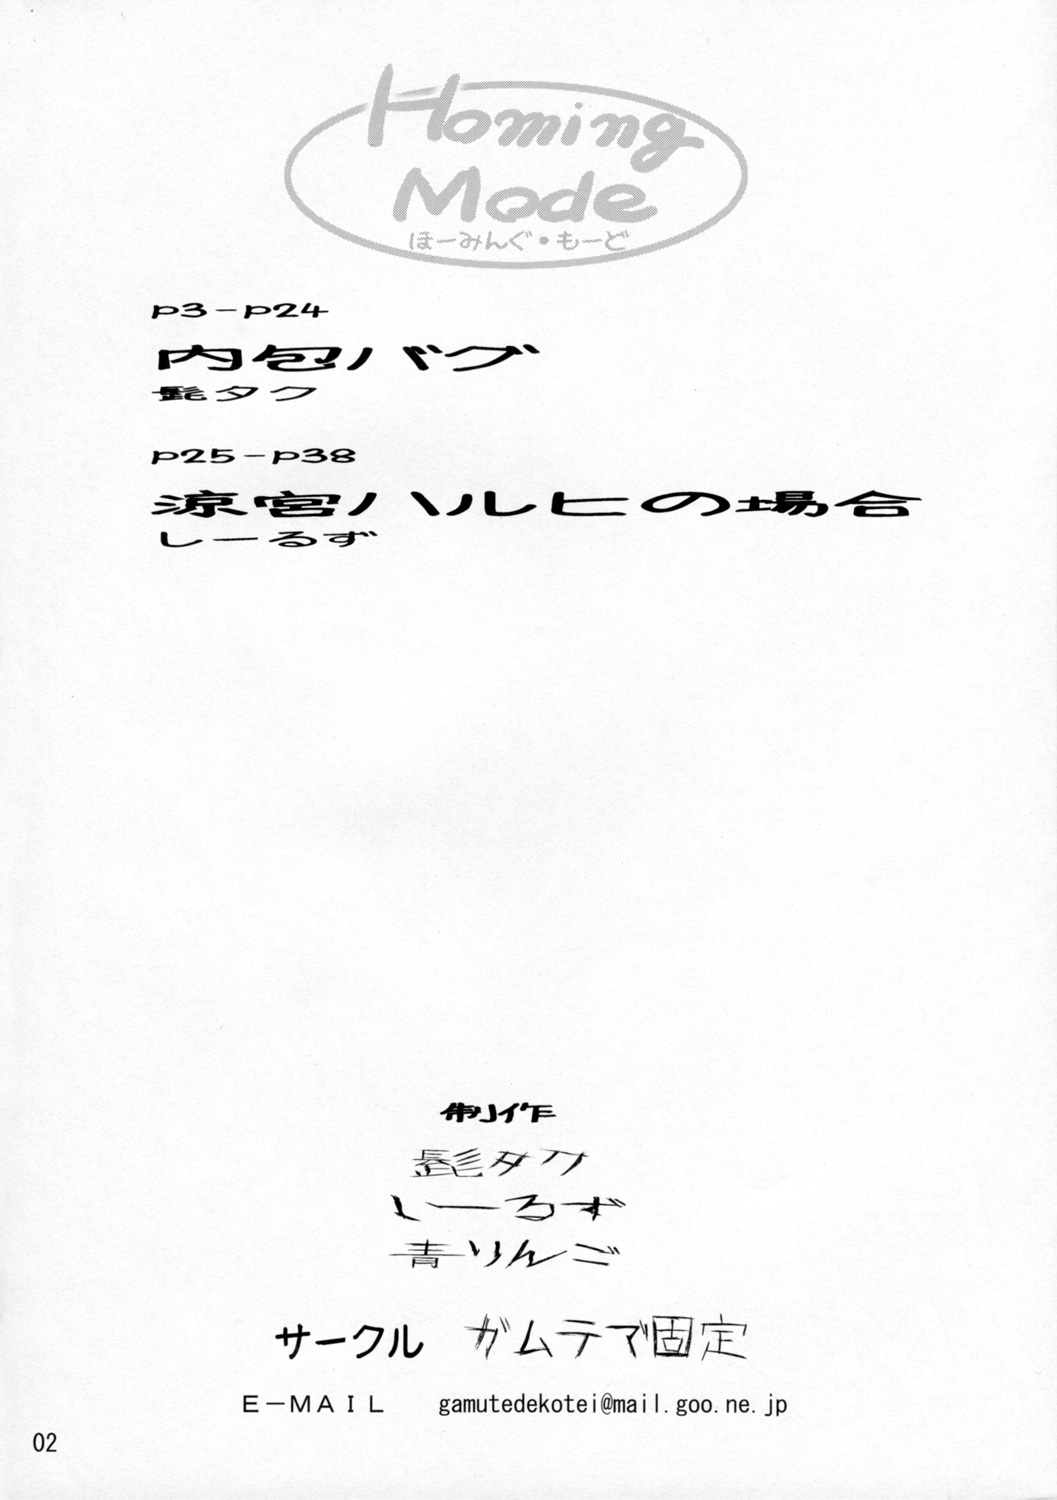 Homing
Mode
ほーみんぐ・もーど
p3-p24
内包バグ
髭タク
p25-p38
涼宮ハルヒの場合
しーるず
制作
髭タク
しーるず
青りんご
サークル ガムテマ固定
E-MAIL gamutedekotei@mail.goo.ne.jp
02